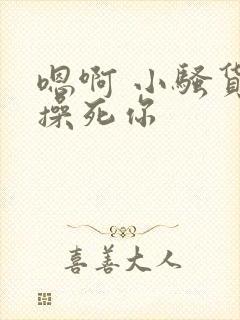 嗯啊 小骚货
操死你
喜善大人